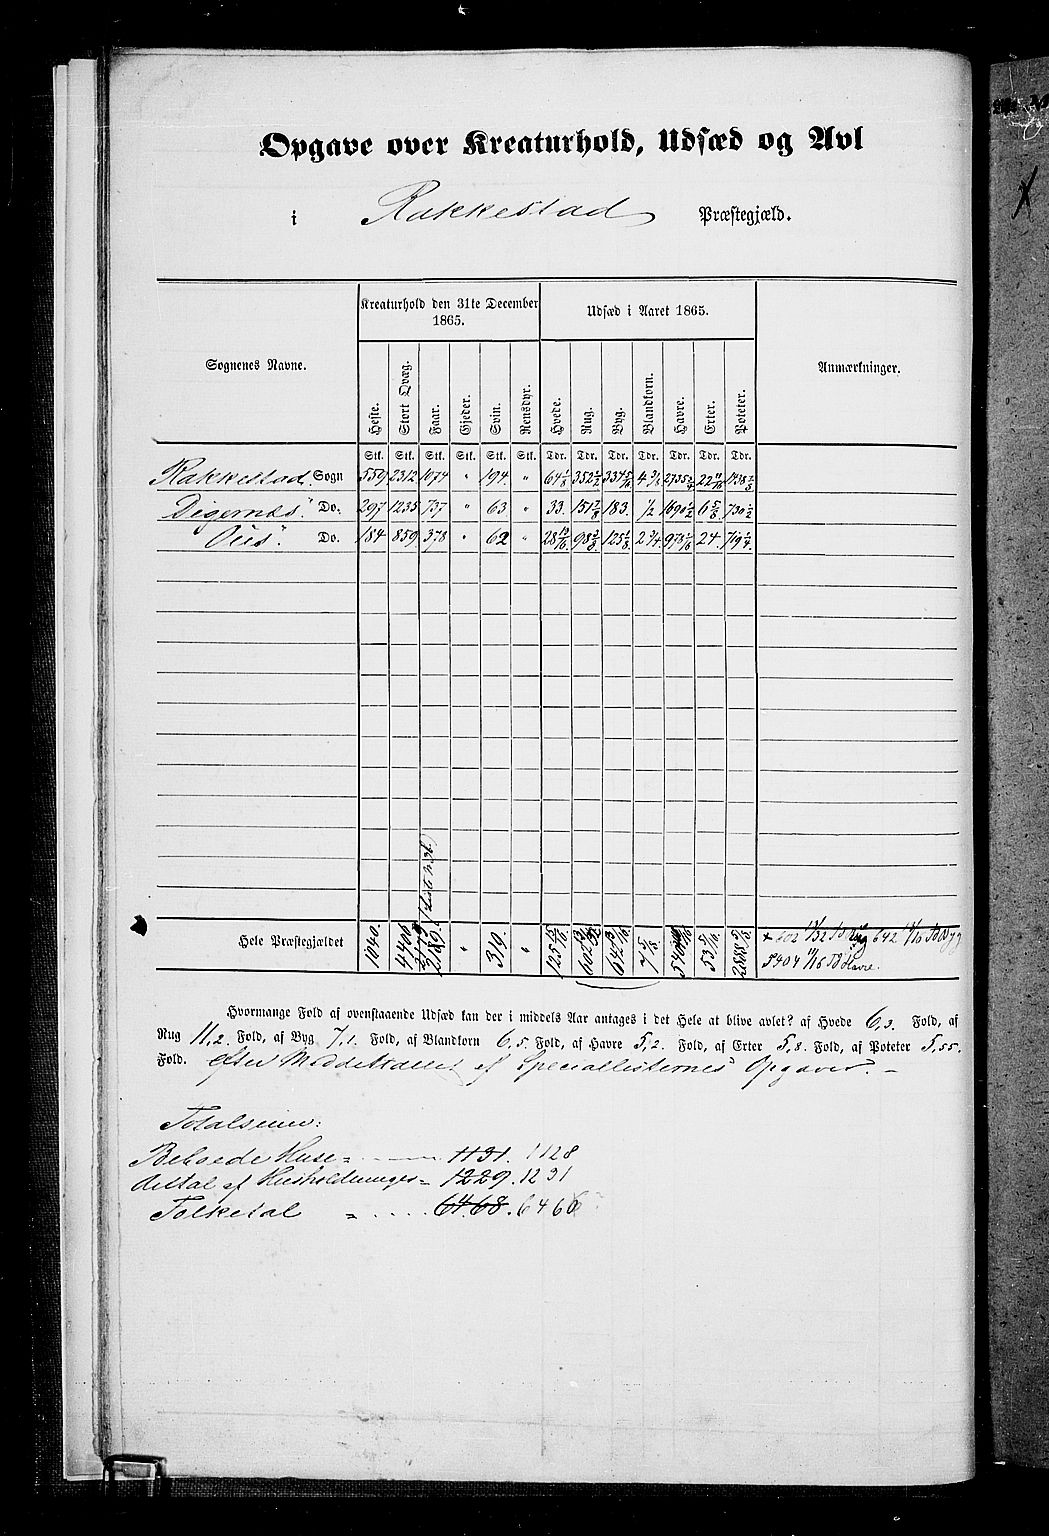 Opgave over Kreaturhold, Udsæd og Avl
i Rakkestad Præstegjæld.
Sognenes Navne.
Kreaturhold den 31te December 1865.
Udsæd i Aaret 1865.
Anmærkninger.
Heste. Stort Qvæg. Faar. Gjeder. Svin. Rensdyr. Hvede. Rug. Byg. Blandkorn. Havre. Erter. Poteter.
Stk. Stk. Stk. Stk. Stk. Stk. Tdr. Tdr. Tdr. Tdr. Tdr. Tdr. Tdr.
Rakkestad Sogn 559 2312 1074 " 194. " 64 1/8 352 1/2 334 5/16 4 3/8 2735 3/4 22 11/16 1438 1/8
Degernæs " Do. 297 1235 737 " 63 " 33. 151 7/8 183. 1/2 1690 1/2 6 5/8 730 1/2
Øiis " Do. 184 859 378 " 62 " 28 13/16 98 3/8 125 1/8 2 3/4 978 1/16 24. 719 1/4
Hele Præstegjældet 1040. 4406 2189. " 319. " 125 15/16 602 642 7/16 7 5/8 5404 53 5/16 2888
+ 602 13/32 Td Rug 642 7/16 Td Byg
5404 11/16 Td Havre.
Hvormange Fold af ovenstaaende Udsæd kan der i middels Aar antages i det Hele at blive avlet? af Hvede 6,3. Fold, af
Rug 11,2. Fold, af Byg 7,1. Fold, af Blandkorn 6,5. Fold, af Havre 5,2. Fold, af Erter 5,8. Fold, af Poteter 5,55.
Fold. efter Middeltallet af Speciallisternes Opgaver. -
Totalsum:
Beboede Huse = 1131. 1128
Antal af Husholdninger = 1229. 1231
Folketal = 6468. 6466